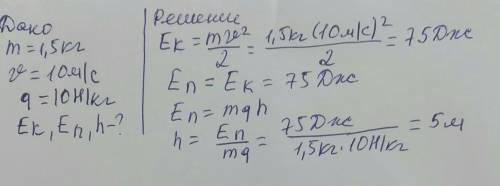 Дано
m = 1,5кг
υ = 10м/с
g = 10Н/кг
Eк, Eп, h-?
Решение
Eк = mυ²/2 = 1,5кг(10м/с)²/2 = 75Дж
Eп = Eк = 75Дж
Eп = mgh
h = Eп/mg = 75Дж/1,5кг·10Н/кг = 5м